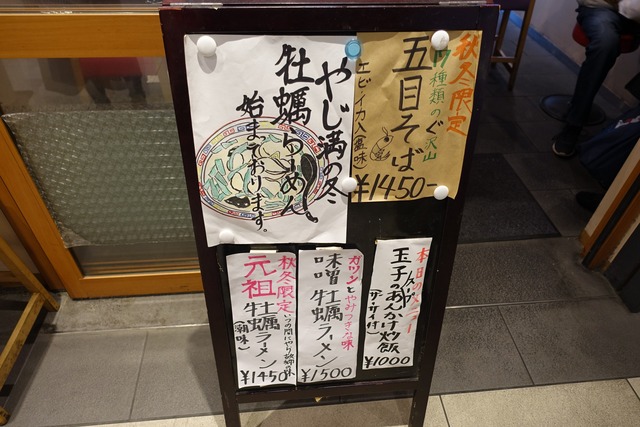 やじ満の冬
牡蠣らーめん
始まております。
秋冬限定
17種類のぐ沢山
五目そば
エビ・イカ入(醤味)
¥1450-
秋冬限定
いつの間にやら故郷の味
元祖
牡蠣ラーメン
(潮味)
¥1450
ガツンとやみつきな味
味噌牡蠣ラーメン
¥1500
本日の
玉子のあんかけ炒飯
(ザーサイ付)
¥1000